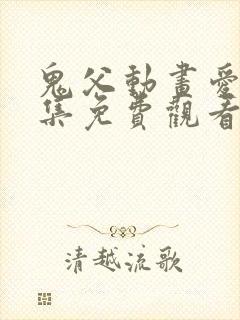 鬼父動畫愛
集免費觀看
清越流歌